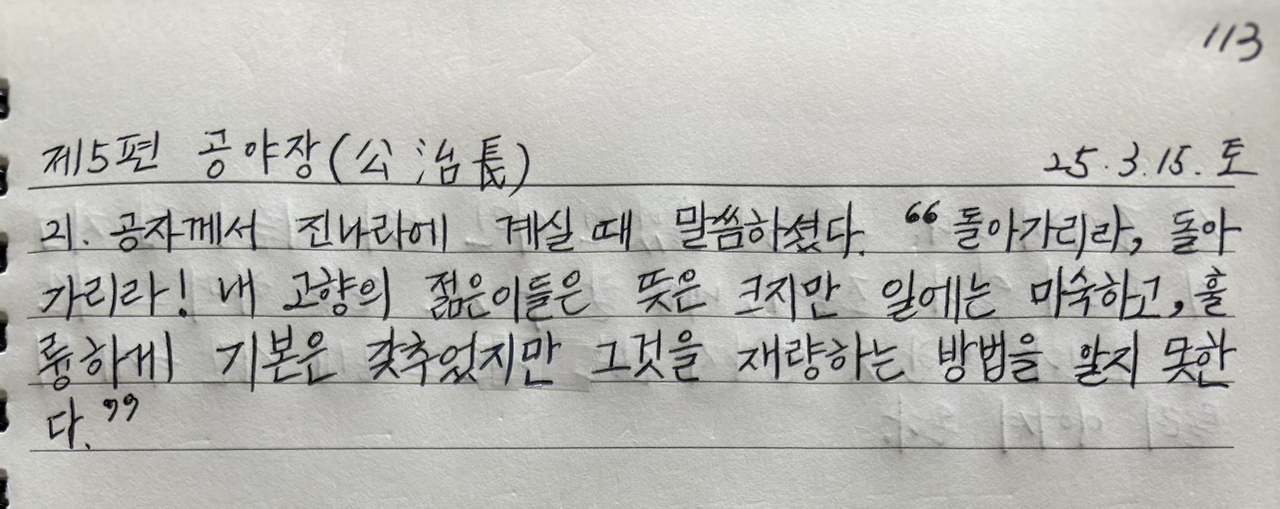 113
제5편 공야장(公冶長) 25.3.15.토
21. 공자께서 진나라에 계실 때 말씀하셨다. “돌아가리라, 돌아
가리라! 내 고향의 젊은이들은 뜻은 크지만 일에는 미숙하고, 훌
륭하게 기본은 갖추었지만 그것을 재량하는 방법을 알지 못한
다.”